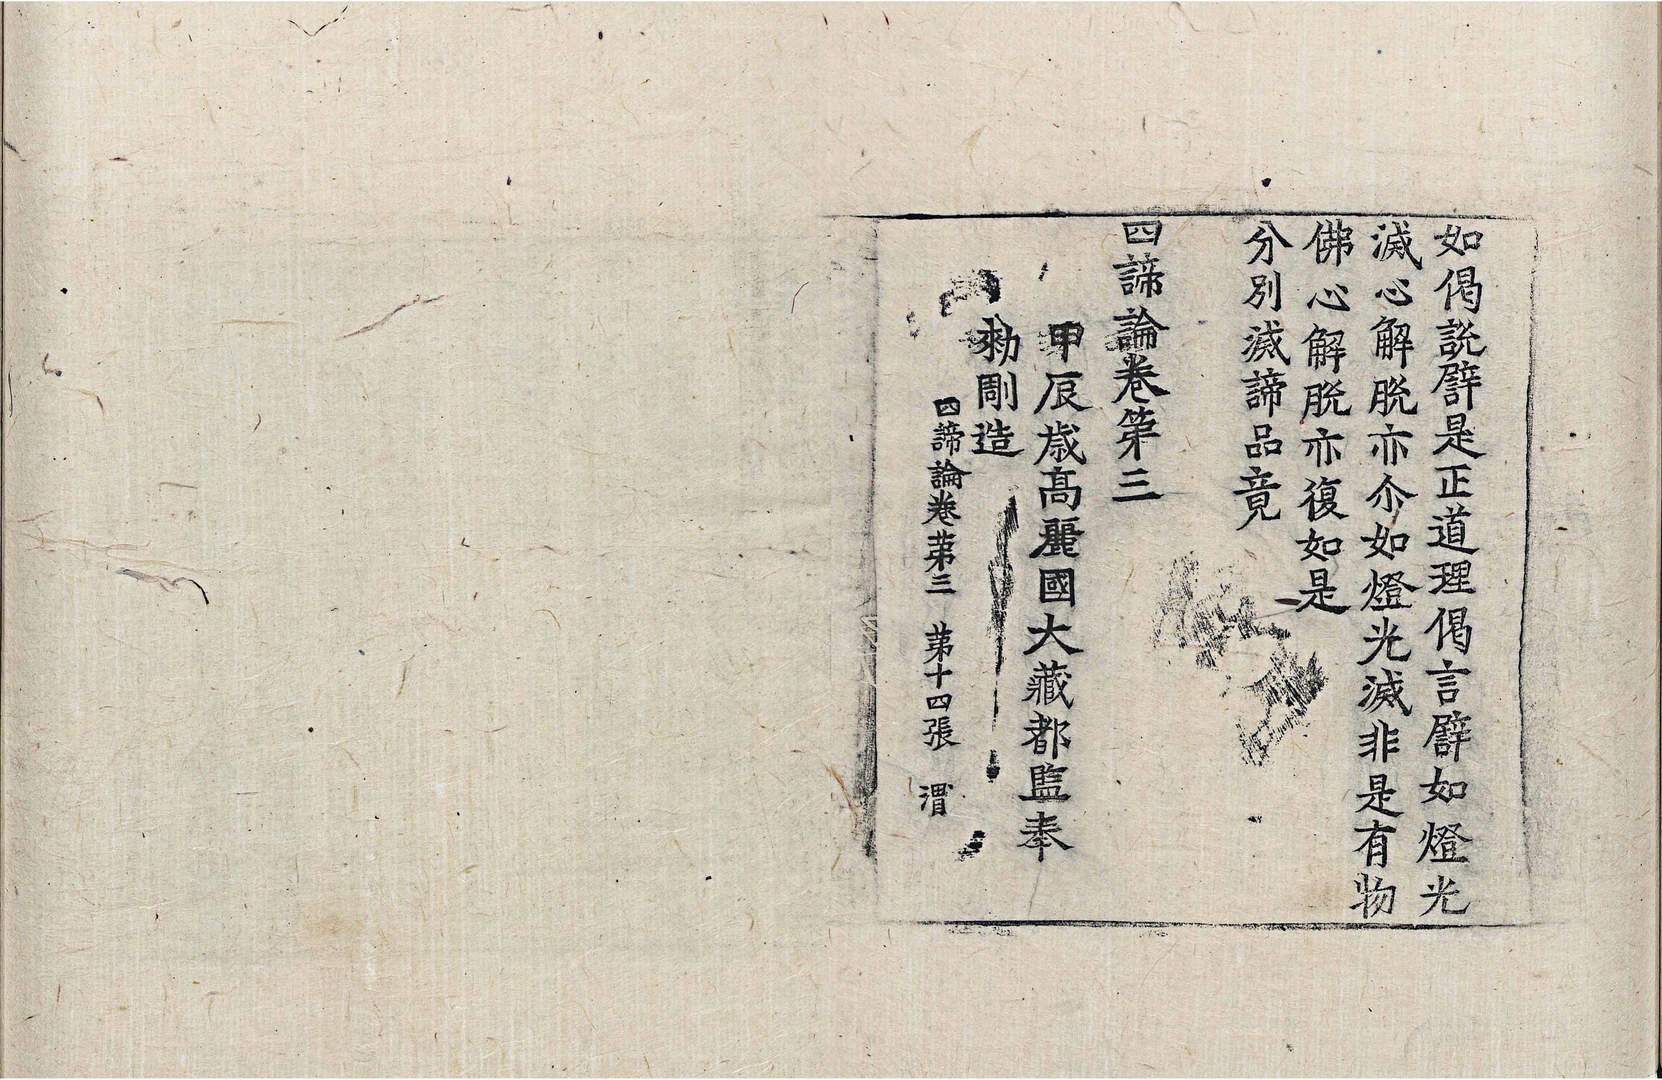 如偈說譬是正道理偈言譬如燈光
滅心解脫亦尒如燈光滅非是有物
佛心解脫亦復如是
分別滅諦品竟
四諦論卷第三
甲辰歲高麗國大藏都監奉
勑彫造
四諦論卷第三 第十四張 渭